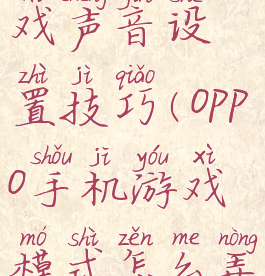 戏声音设
zhì jì qiǎo
置技巧(OPP
shǒu jī yóu xì
O手机游戏
mó shì zěn me nòng
模式怎么弄